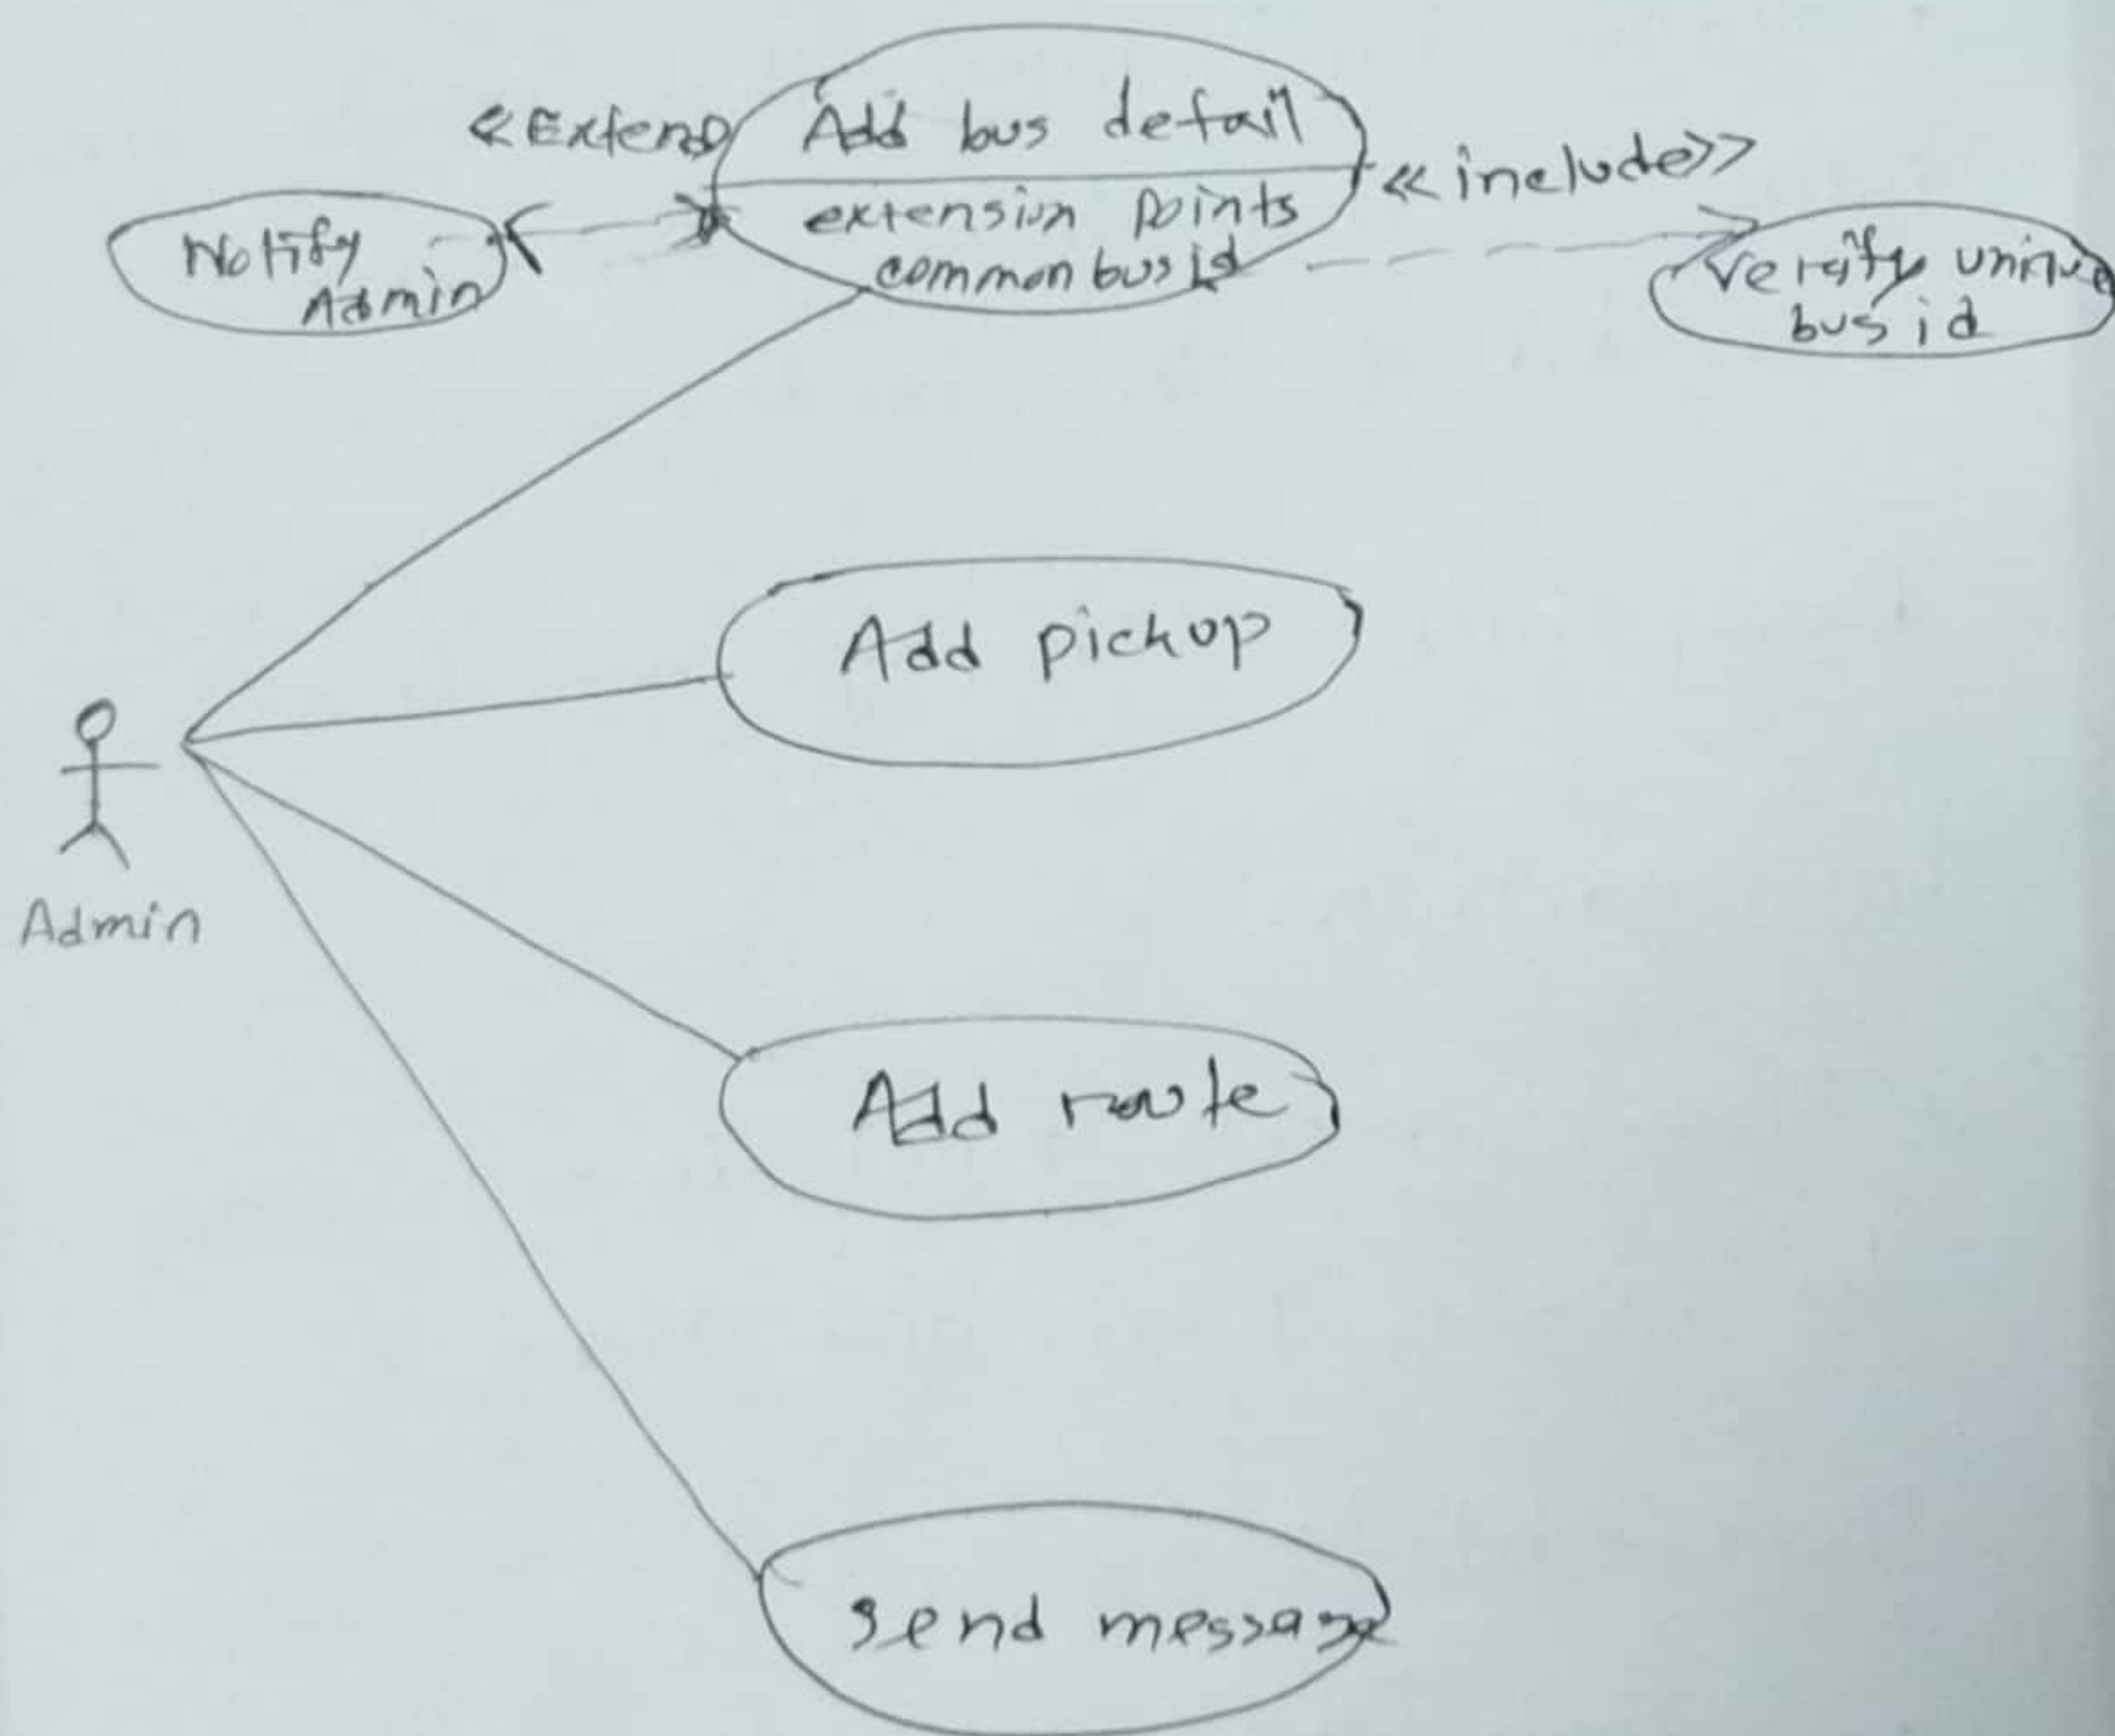 <<Extend
Add bus detail
<<include>>
extension points
common bus id
Notify
Admin
Verify unique
bus id
Add pickup
Admin
Add route
send message